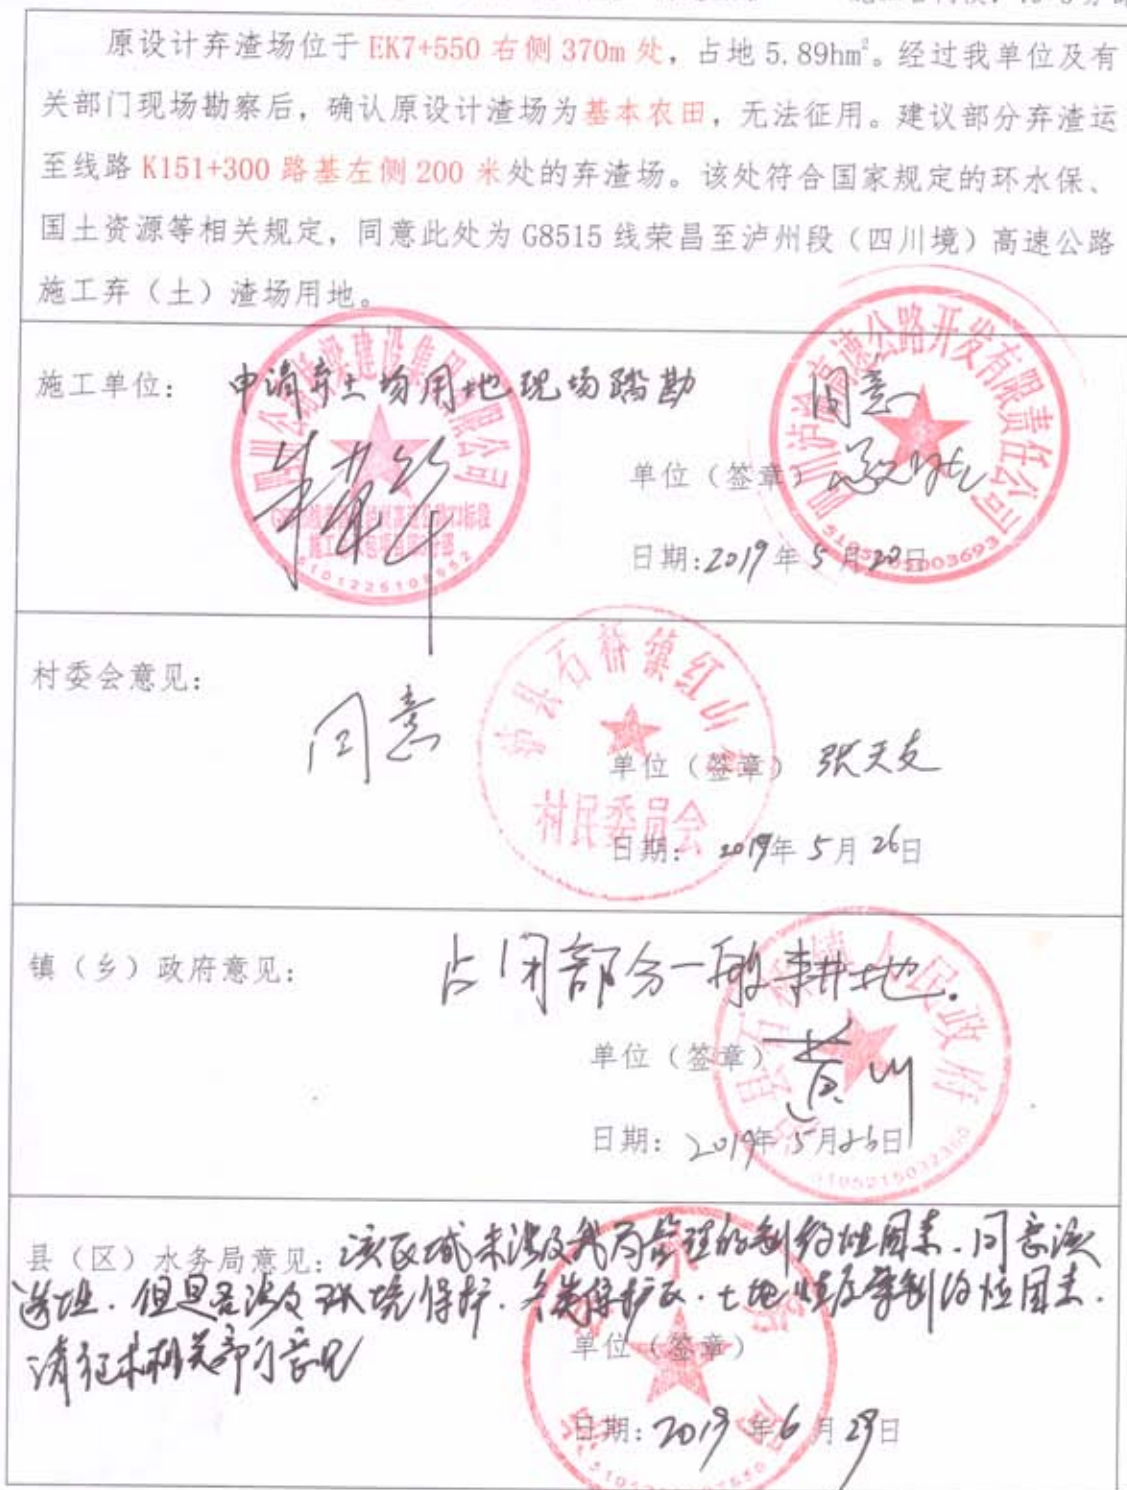 原设计弃渣场位于 EK7+550 右侧 370m 处，占地 5.89hm²。经过我单位及有
关部门现场勘察后，确认原设计渣场为基本农田，无法征用。建议部分弃渣运
至线路 K151+300 路基左侧 200 米处的弃渣场。该处符合国家规定的环水保、
国土资源等相关规定，同意此处为 G8515 线荣昌至泸州段（四川境）高速公路
施工弃（土）渣场用地。
施工单位： 申请弃土场用地现场踏勘 同意
四川公路桥梁建设集团有限公司
四川泸渝高速公路开发有限责任公司
单位（签章）
日期：2019 年 5 月 20 日
村委会意见：
同意
县石桥镇红山
村民委员会
单位（签章） 张天友
日期： 2019年 5月 26日
镇（乡）政府意见： 占用部分一般耕地.
县石桥镇人民政府
单位（签章） 黄川
日期： 2019年 5月26日
县（区）水务局意见：该区域未涉及我局管理的制约性因素.同意该
选址.但是否涉及环境保护.各类保护区.土地性质等制约性因素.
请征求相关部门意见
单位（签章）
日期：2019 年 6 月 29日